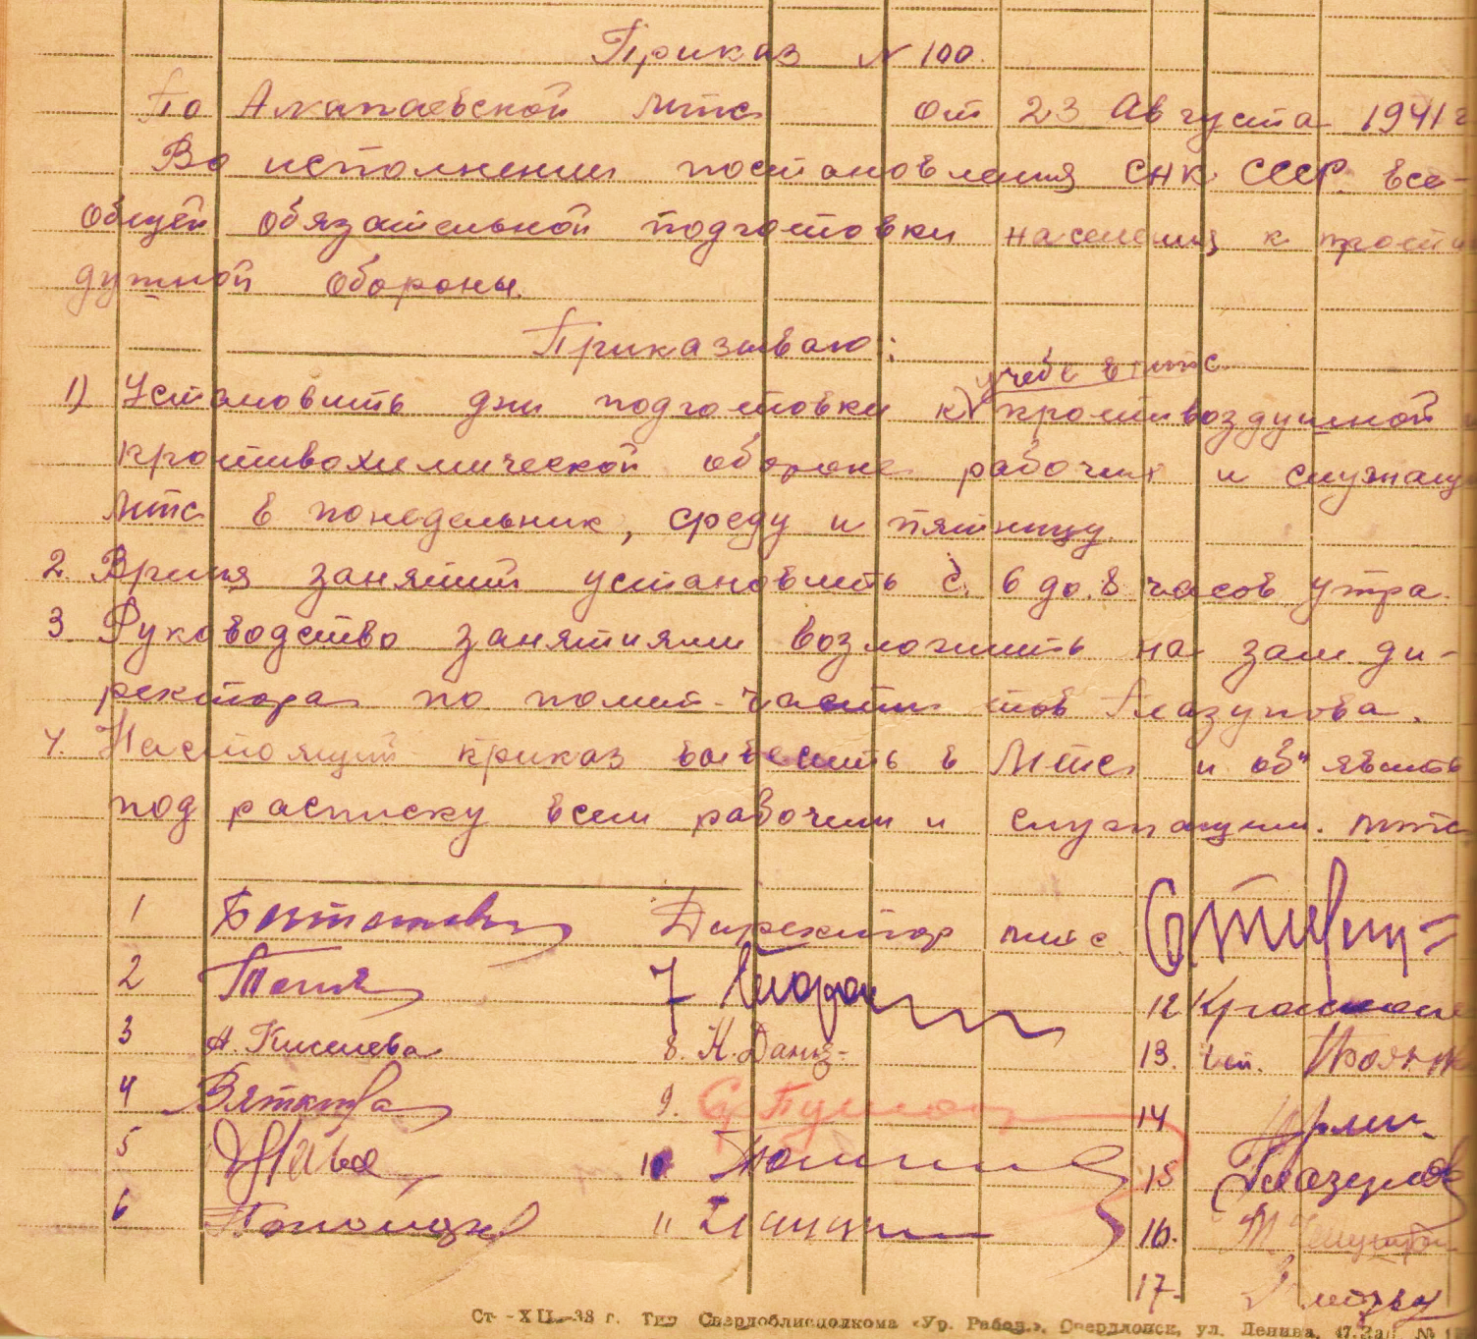 Приказ № 100.
По Алапаевской мтс от 23 Августа 1941 г
Во исполнении постановления СНК СССР. все-
общей обязательной подготовки населения к проти
душной обороны.
Приказываю:
учебе в мтс
1) Установить дни подготовки к противоздушной и
противохимической обороне рабочих и служащ
мтс в понедельник, среду и пятницу.
2. Время занятий установить с. 6 до. 8 часов утра.
3. Руководство занятиями возложить на зам ди-
ректора по полит-части тов Глазунова.
4. Настоящий приказ вывесить в Мтс и об"явить
под расписку всем рабочим и служащим. мтс
1 Директор мтс.
2 7
12
3 А. Киселева 8. Н. Данц-
13.
4 Вяткина 9.
14
5 10
15 Глазунов
6 11
16.
17.
Ст--XII.-38 г. Тип Свердоблисполкома «Ур. Рабоч.», Свердловск, ул. Ленина, 47. Зак №